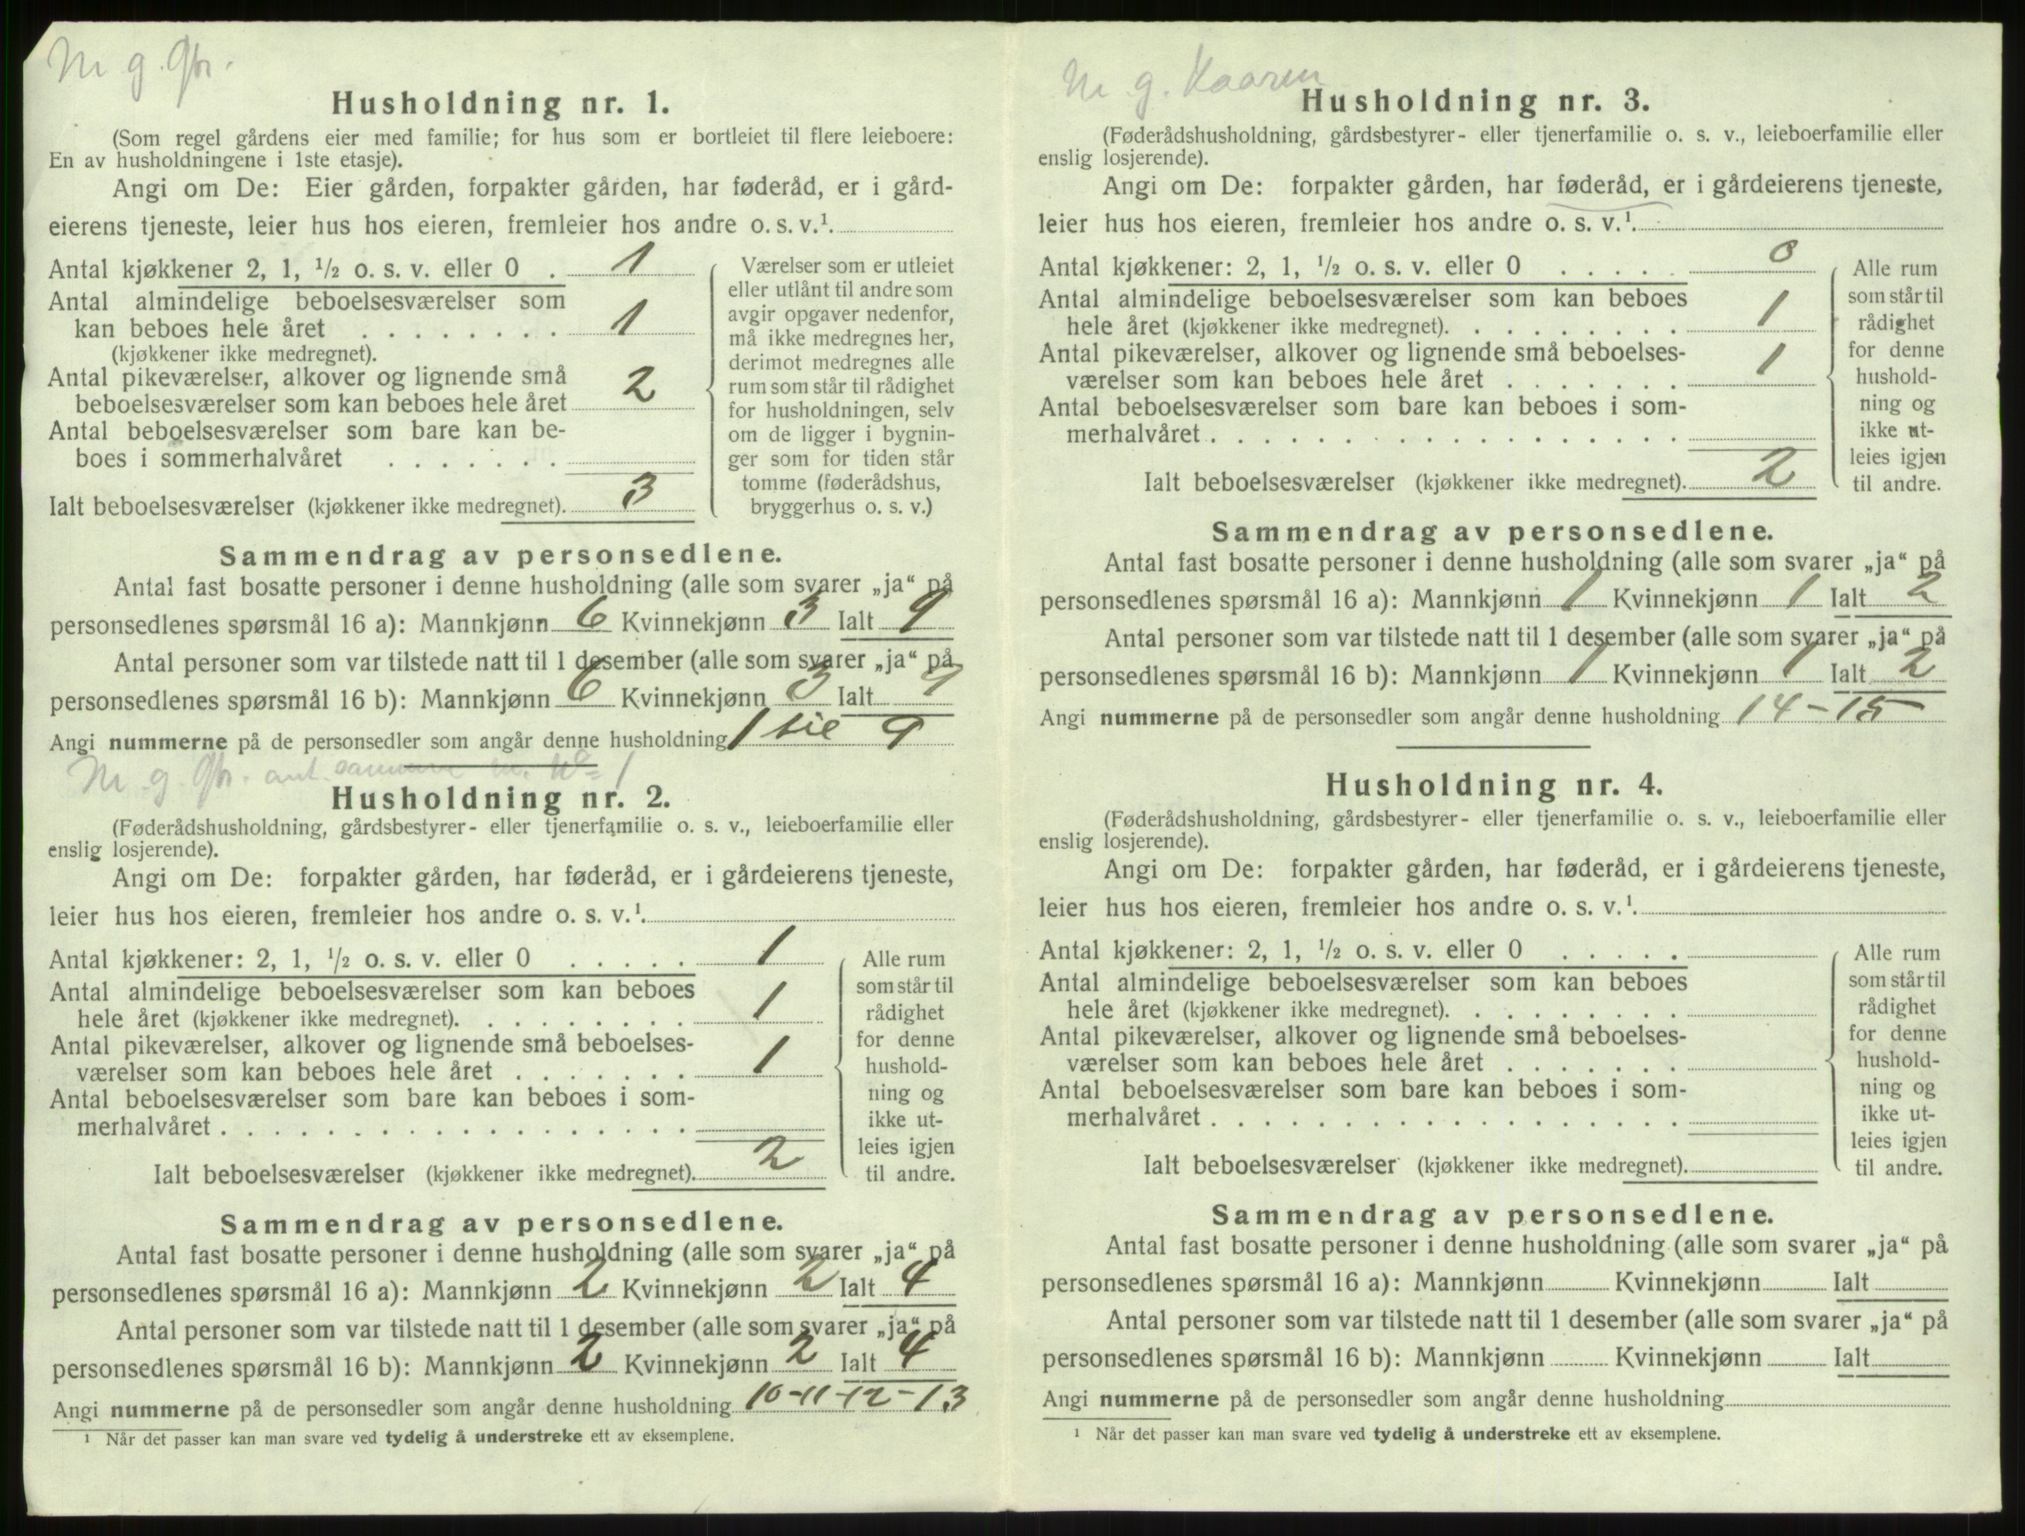 M g. gbr.
Husholdning nr. 1.
(Som regel gårdens eier med familie; for hus som er bortleiet til flere leieboere:
En av husholdningene i 1ste etasje).
Angi om De: Eier gården, forpakter gården, har føderåd, er i gård-
eierens tjeneste, leier hus hos eieren, fremleier hos andre o. s. v.¹
Antal kjøkkener 2, 1, ½ o. s. v. eller 0 . 1
Antal almindelige beboelsesværelser som
kan beboes hele året . . . . . . . . 1
(kjøkkener ikke medregnet).
Antal pikeværelser, alkover og lignende små
beboelsesværelser som kan beboes hele året 2
Antal beboelsesværelser som bare kan be-
boes i sommerhalvåret . . . . . . .
Ialt beboelsesværelser (kjøkkener ikke medregnet). 3
Værelser som er utleiet
eller utlånt til andre som
avgir opgaver nedenfor,
må ikke medregnes her,
derimot medregnes alle
rum som står til rådighet
for husholdningen, selv
om de ligger i bygnin-
ger som for tiden står
tomme (føderådshus,
bryggerhus o. s. v.)
Sammendrag av personsedlene.
Antal fast bosatte personer i denne husholdning (alle som svarer „ja“ på
personsedlenes spørsmål 16 a): Mannkjønn 6 Kvinnekjønn 3 Ialt 9
Antal personer som var tilstede natt til 1 desember (alle som svarer „ja“ på
personsedlenes spørsmål 16 b): Mannkjønn 6 Kvinnekjønn 3 Ialt 9
Angi nummerne på de personsedler som angår denne husholdning 1 til 9
M. g. gbr. ant. samme 1
Husholdning nr. 2.
(Føderådshusholdning, gårdsbestyrer- eller tjenerfamilie o. s. v., leieboerfamilie eller
enslig losjerende).
Angi om De: forpakter gården, har føderåd, er i gårdeierens tjeneste,
leier hus hos eieren, fremleier hos andre o. s. v.¹
Antal kjøkkener: 2, 1, ½ o. s. v. eller 0 . . . . . 1
Antal almindelige beboelsesværelser som kan beboes
hele året (kjøkkener ikke medregnet). . . . . . . . . 1
Antal pikeværelser, alkover og lignende små beboelses-
værelser som kan beboes hele året . . . . . . . 1
Antal beboelsesværelser som bare kan beboes i som-
merhalvåret . . . . . . . . . . . . . . . . . .
Ialt beboelsesværelser (kjøkkener ikke medregnet). 2
Alle rum
som står til
rådighet
for denne
hushold-
ning og
ikke ut-
leies igjen
til andre.
Sammendrag av personsedlene.
Antal fast bosatte personer i denne husholdning (alle som svarer „ja“ på
personsedlenes spørsmål 16 a): Mannkjønn 2 Kvinnekjønn 2 Ialt 4
Antal personer som var tilstede natt til 1 desember (alle som svarer „ja“ på
personsedlenes spørsmål 16 b): Mannkjønn 2 Kvinnekjønn 2 Ialt 4
Angi nummerne på de personsedler som angår denne husholdning 10-11-12-13
¹ Når det passer kan man svare ved tydelig å understreke ett av eksemplene.
M. g. Kaaren
Husholdning nr. 3.
(Føderådshusholdning, gårdsbestyrer- eller tjenerfamilie o. s. v., leieboerfamilie eller
enslig losjerende).
Angi om De: forpakter gården, har føderåd, er i gårdeierens tjeneste,
leier hus hos eieren, fremleier hos andre o. s. v.¹
Antal kjøkkener: 2, 1, ½ o. s. v. eller 0 . . . . . 0
Antal almindelige beboelsesværelser som kan beboes
hele året (kjøkkener ikke medregnet). . . . . . . . . 1
Antal pikeværelser, alkover og lignende små beboelses-
værelser som kan beboes hele året . . . . . . . 1
Antal beboelsesværelser som bare kan beboes i som-
merhalvåret . . . . . . . . . . . . . . . . . .
Ialt beboelsesværelser (kjøkkener ikke medregnet). 2
Alle rum
som står til
rådighet
for denne
hushold-
ning og
ikke ut-
leies igjen
til andre.
Sammendrag av personsedlene.
Antal fast bosatte personer i denne husholdning (alle som svarer „ja“ på
personsedlenes spørsmål 16 a): Mannkjønn 1 Kvinnekjønn 1 Ialt 2
Antal personer som var tilstede natt til 1 desember (alle som svarer „ja“ på
personsedlenes spørsmål 16 b): Mannkjønn 1 Kvinnekjønn 1 Ialt 2
Angi nummerne på de personsedler som angår denne husholdning 14-15
Husholdning nr. 4.
(Føderådshusholdning, gårdsbestyrer- eller tjenerfamilie o. s. v., leieboerfamilie eller
enslig losjerende).
Angi om De: forpakter gården, har føderåd, er i gårdeierens tjeneste,
leier hus hos eieren, fremleier hos andre o. s. v.¹
Antal kjøkkener: 2, 1, ½ o. s. v. eller 0 . . . . .
Antal almindelige beboelsesværelser som kan beboes
hele året (kjøkkener ikke medregnet). . . . . . . . .
Antal pikeværelser, alkover og lignende små beboelses-
værelser som kan beboes hele året . . . . . . .
Antal beboelsesværelser som bare kan beboes i som-
merhalvåret . . . . . . . . . . . . . . . . . .
Ialt beboelsesværelser (kjøkkener ikke medregnet).
Alle rum
som står til
rådighet
for denne
hushold-
ning og
ikke ut-
leies igjen
til andre.
Sammendrag av personsedlene.
Antal fast bosatte personer i denne husholdning (alle som svarer „ja“ på
personsedlenes spørsmål 16 a): Mannkjønn Kvinnekjønn Ialt
Antal personer som var tilstede natt til 1 desember (alle som svarer „ja“ på
personsedlenes spørsmål 16 b): Mannkjønn Kvinnekjønn Ialt
Angi nummerne på de personsedler som angår denne husholdning
¹ Når det passer kan man svare ved tydelig å understreke ett av eksemplene.